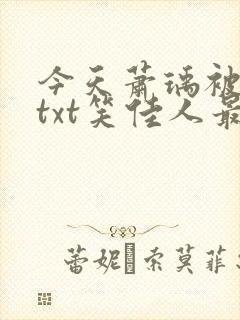 今天萧瑀被
txt笑佳人最
蕾妮·索莫菲